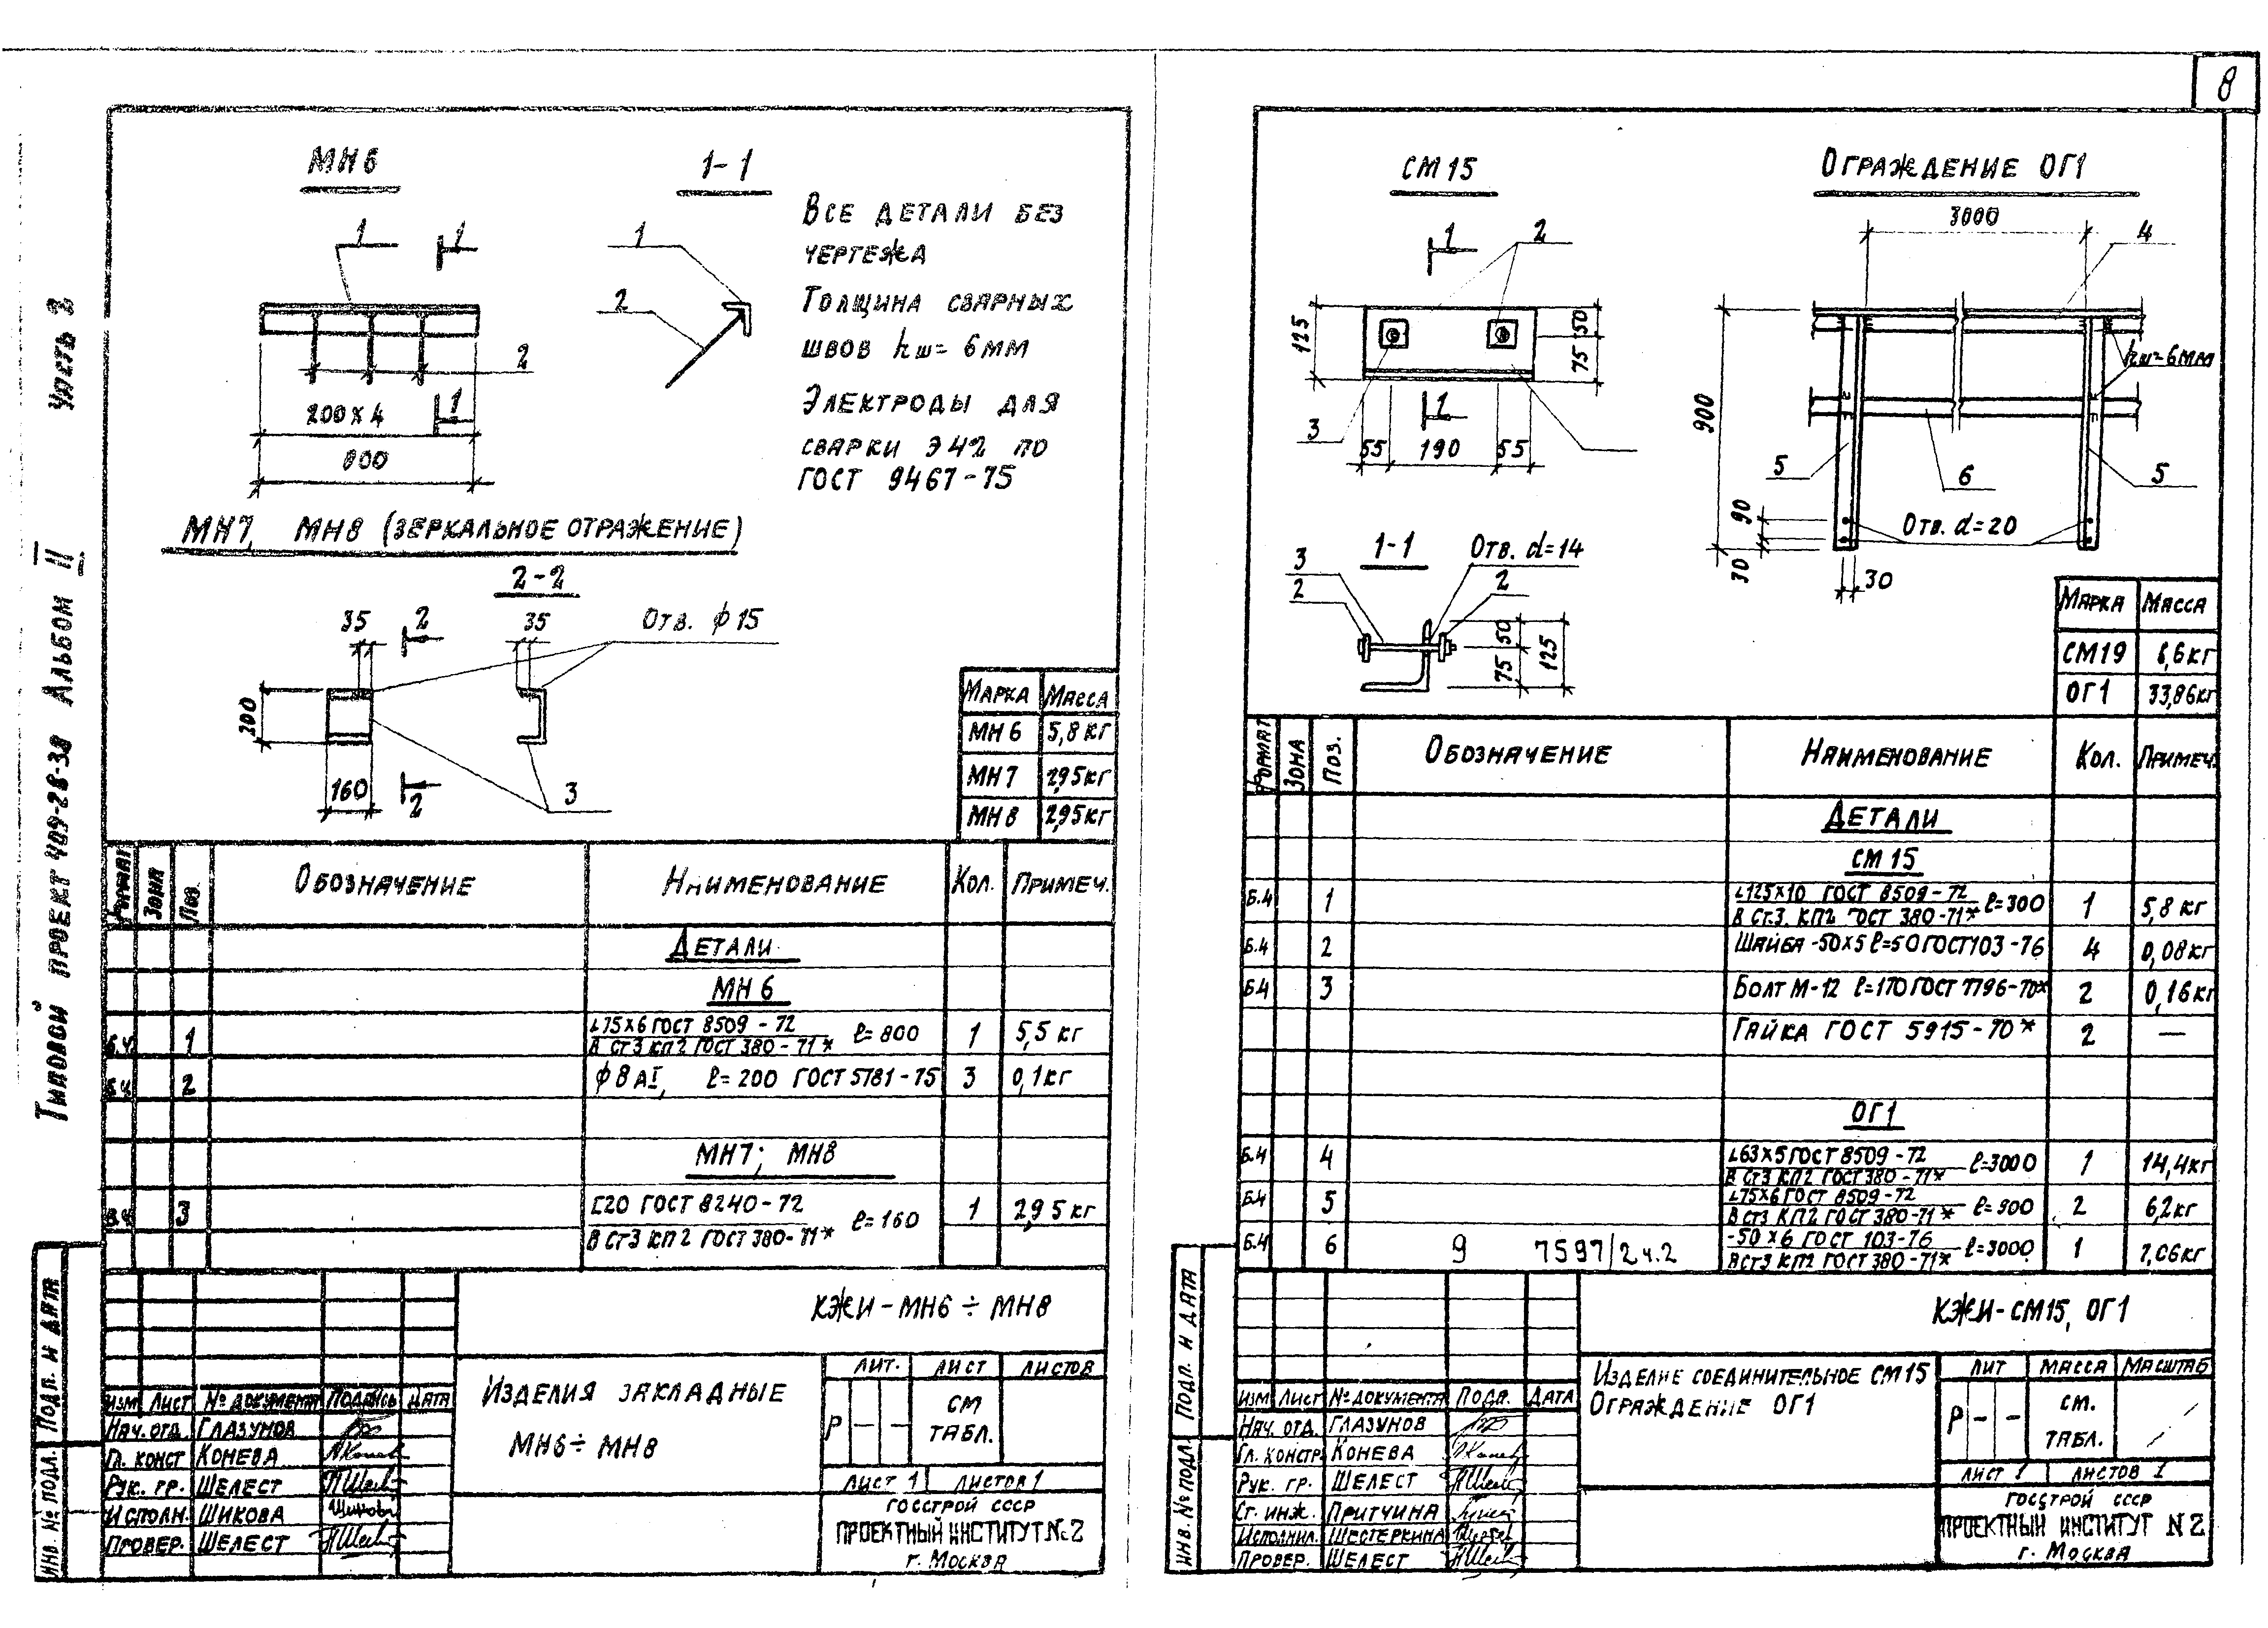 8
Типовой проект 409-28-38 Альбом II Часть 2
МН6
1-1
1
1
1
2
2
1
200×4
800
Все детали без
чертежа
Толщина сварных
швов hш= 6мм
Электроды для
сварки Э42 по
ГОСТ 9467-75
МН7, МН8 (зеркальное отражение)
2-2
35
2
35
Отв. ф15
200
160
2
3
Марка Масса
МН6 5,8кг
МН7 2,95кг
МН8 2,95кг
Формат Зона Поз. Обозначение Наименование Кол. Примеч.
Детали
МН6
Б.4 1 L75×6 ГОСТ 8509-72
В Ст3 КП2 ГОСТ 380-71* ℓ=800 1 5,5 кг
Б.4 2 ф8АI, ℓ=200 ГОСТ 5781-75 3 0,1кг
МН7; МН8
Б.4 3 [20 ГОСТ 8240-72
В Ст3 КП2 ГОСТ 380-71* ℓ=160 1 2,95кг
Подп. и дата
Инв. № подл.
КЖИ-МН6÷МН8
Изделия закладные
МН6÷МН8
Лит. Лист Листов
Р – – см
табл.
Лист 1 Листов 1
Госстрой СССР
Проектный институт №2
г. Москва
Изм Лист № документа Подпись Дата
Нач. отд. Глазунов
Гл. конст Конева
Рук. гр. Шелест
Исполн. Шикова
Провер. Шелест
СМ15
1
2
125
50
75
3
1
55 190 55
1-1
Отв. d=14
3
2
2
50
75
125
Ограждение ОГ1
3000
4
hш=6мм
900
5
6
5
90
30
Отв. d=20
30
Марка Масса
СМ19 6,6кг
ОГ1 33,86кг
Формат Зона Поз. Обозначение Наименование Кол. Примеч.
Детали
СМ15
Б.4 1 L125×10 ГОСТ 8509-72
В Ст.3 КП2 ГОСТ 380-71* ℓ=300 1 5,8 кг
Б.4 2 Шайба -50×5 ℓ=50 ГОСТ 103-76 4 0,08кг
Б.4 3 Болт М-12 ℓ=170 ГОСТ 7796-70* 2 0,16кг
Гайка ГОСТ 5915-70* 2 —
ОГ1
Б.4 4 L63×5 ГОСТ 8509-72
В Ст3 КП2 ГОСТ 380-71* ℓ=3000 1 14,4кг
Б.4 5 L75×6 ГОСТ 8509-72
В Ст3 КП2 ГОСТ 380-71* ℓ=900 2 6,2кг
Б.4 6 -50×6 ГОСТ 103-76
В Ст3 КП2 ГОСТ 380-71* ℓ=3000 1 7,06кг
9 7597/2 ч.2
Подп. и дата
Инв. № подл.
КЖИ-СМ15, ОГ1
Изделие соединительное СМ15
Ограждение ОГ1
Лит Масса Масштаб
Р – – см.
табл.
Лист 1 Листов 1
Госстрой СССР
Проектный институт N2
г. Москва
Изм Лист № документа Подп. Дата
Нач. отд. Глазунов
Гл. констр. Конева
Рук. гр. Шелест
Ст. инж. Притчина
Исполнил. Шестеркина
Провер. Шелест